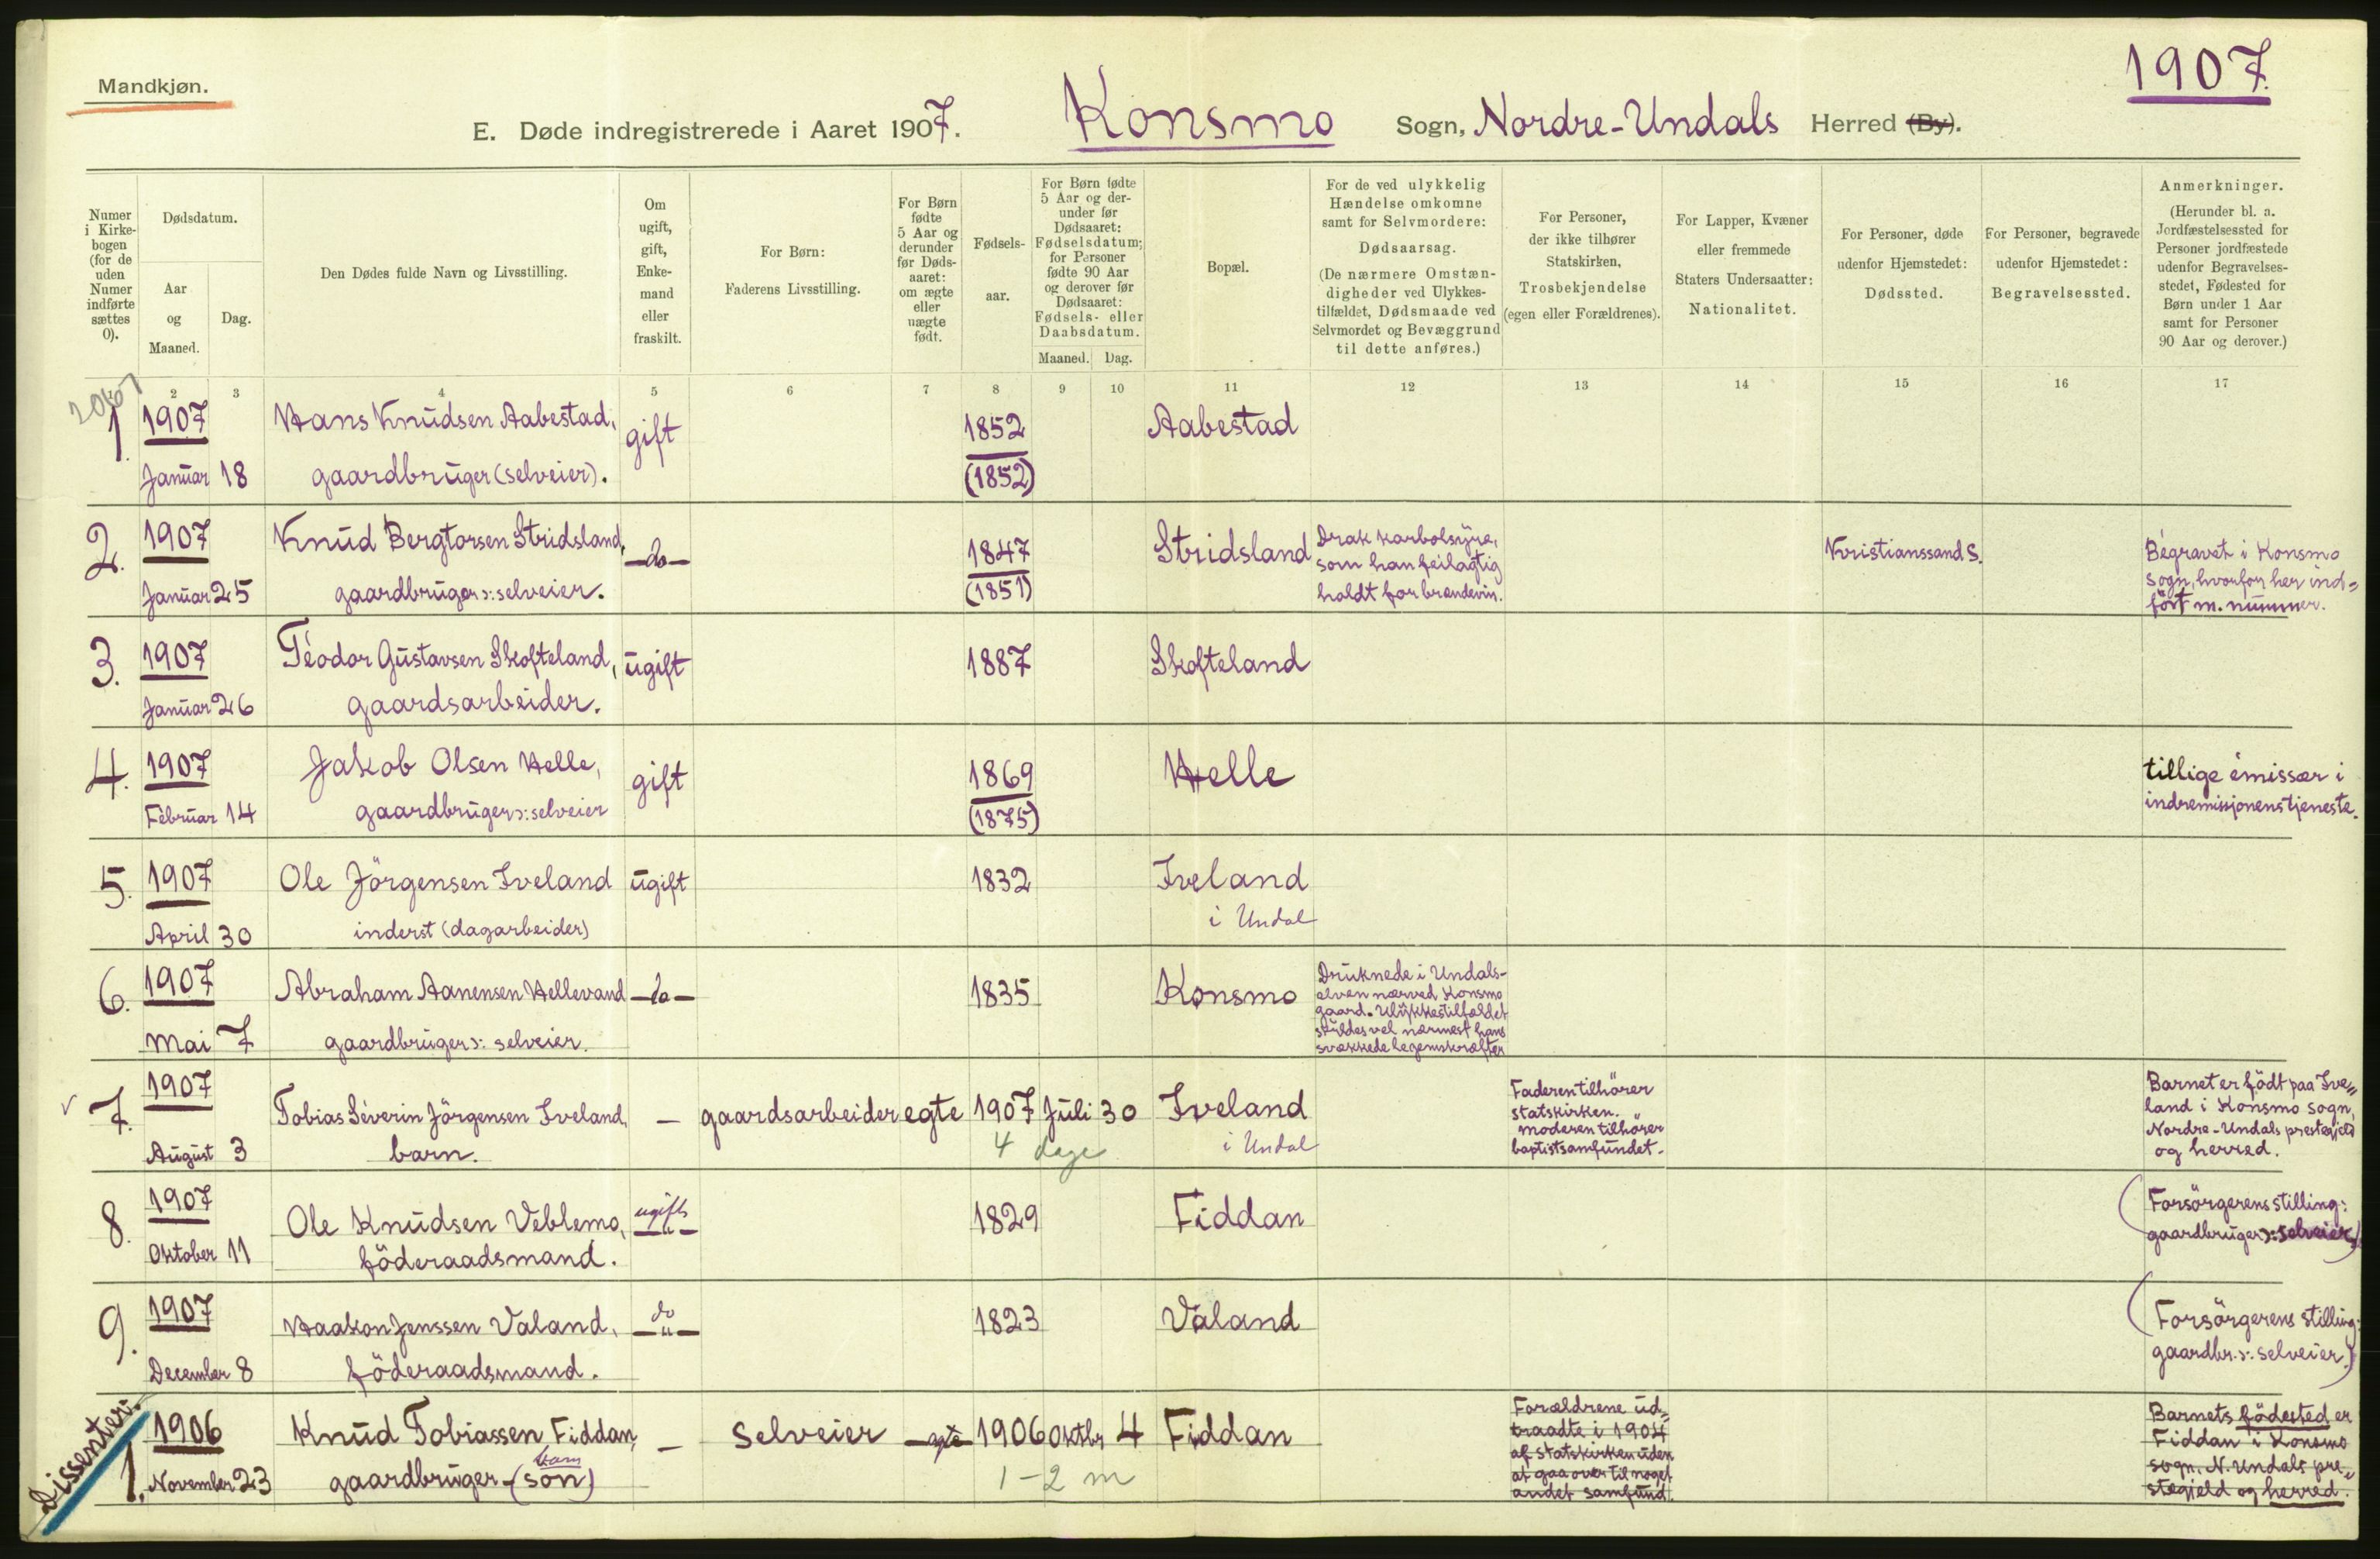 1907.
Mandkjøn.
E. Døde indregistrerede i Aaret 1907. Konsmo Sogn, Nordre-Undals Herred (By).
Numer
i Kirke-
bogen
(for de
uden
Numer
indførte
sættes
0).
Dødsdatum.
Aar
og
Maaned.
Dag.
Den Dødes fulde Navn og Livsstilling.
Om
ugift,
gift,
Enke-
mand
eller
fraskilt.
For Børn:
Faderens Livsstilling.
For Børn
fødte
5 Aar og
derunder
før Døds-
aaret:
om ægte
eller
uægte
født.
Fødsels-
aar.
For Børn fødte
5 Aar og der-
under før
Dødsaaret:
Fødselsdatum;
for Personer
fødte 90 Aar
og derover før
Dødsaaret:
Fødsels- eller
Daabsdatum.
Maaned. Dag.
Bopæl.
For de ved ulykkelig
Hændelse omkomne
samt for Selvmordere:
Dødsaarsag.
(De nærmere Omstæn-
digheder ved Ulykkes-
tilfældet, Dødsmaade ved
Selvmordet og Bevæggrund
til dette anføres.)
For Personer,
der ikke tilhører
Statskirken,
Trosbekjendelse
(egen eller Forældrenes).
For Lapper, Kvæner
eller fremmede
Staters Undersaatter:
Nationalitet.
For Personer, døde
udenfor Hjemstedet:
Dødssted.
For Personer, begravede
udenfor Hjemstedet:
Begravelsessted.
Anmerkninger.
(Herunder bl. a.
Jordfæstelsessted for
Personer jordfæstede
udenfor Begravelses-
stedet, Fødested for
Børn under 1 Aar
samt for Personer
90 Aar og derover.)
2 3 4 5 6 7 8 9 10 11 12 13 14 15 16 17
1. 1907 Hans Knudsen Aabestad, gift 1852 Aabestad
Januar 18 gaardbruger (selveier). (1852)
2. 1907 Knud Bergtorsen Stridsland, -do- 1847 Stridsland
Januar 25 gaardbruger ɔ: selveier. (1851)
Drak karbolsyre,
som han feilagtig
holdt for brændevin.
Kristianssand S.
Begravet i Konsmo
sogn, hvorfor her ind=
ført m. nummer.
3. 1907 Teodor Gustavsen Skofteland, ugift 1887 Skofteland
Januar 26 gaardsarbeider.
4. 1907 Jakob Olsen Helle, gift 1869 Helle
Februar 14 gaardbruger ɔ: selveier (1875)
tillige emissær i
indremissjonens tjeneste.
5. 1907 Ole Jörgensen Iveland ugift 1832 Iveland
April 30 inderst (dagarbeider) i Undal
6. 1907 Abraham Aanensen Hellevand -do- 1835 Konsmo
Mai 7 gaardbruger ɔ: selveier.
Druknede i Undals-
elven nærved Konsmo
gaard. Ulykkestilfældet
skyldes vel nærmest hans
svækkede legemskræfter
7. 1907 Tobias Severin Jörgensen Iveland, - gaardsarbeider egte 1907 Juli 30 Iveland
August 3 barn. 4 dage i Undal
Faderen tilhører
statskirken.
moderen tilhører
baptistsamfundet.
Barnet er födt paa Ive=
land i Konsmo sogn,
Nordre-Undals prestegjeld
og herred.
8. 1907 Ole Knudsen Veblemo, ugift -"- 1829 Fiddan
Oktober 11 föderaadsmand.
(Forsörgerens stilling:
gaardbruger ɔ: selveier)
9. 1907 Haakon Jenssen Valand, do -"- 1823 Valand
December 8 föderaadsmand.
(Forsörgerens stilling:
gaardbr. ɔ: selveier.)
Dissenter:
1. 1906 Knud Tobiassen Fiddan, - Selveier egte 1906 Oktbr 4 Fiddan
November 23 gaardbruger-(sön) barn 1-2 m
Forældrene ud=
traadte i 1904
af statskirken uden
at gaa over til noget
andet samfund.
Barnets födested er
Fiddan i Konsmo
sogn, N. Undals pre=
stegjeld og herred.